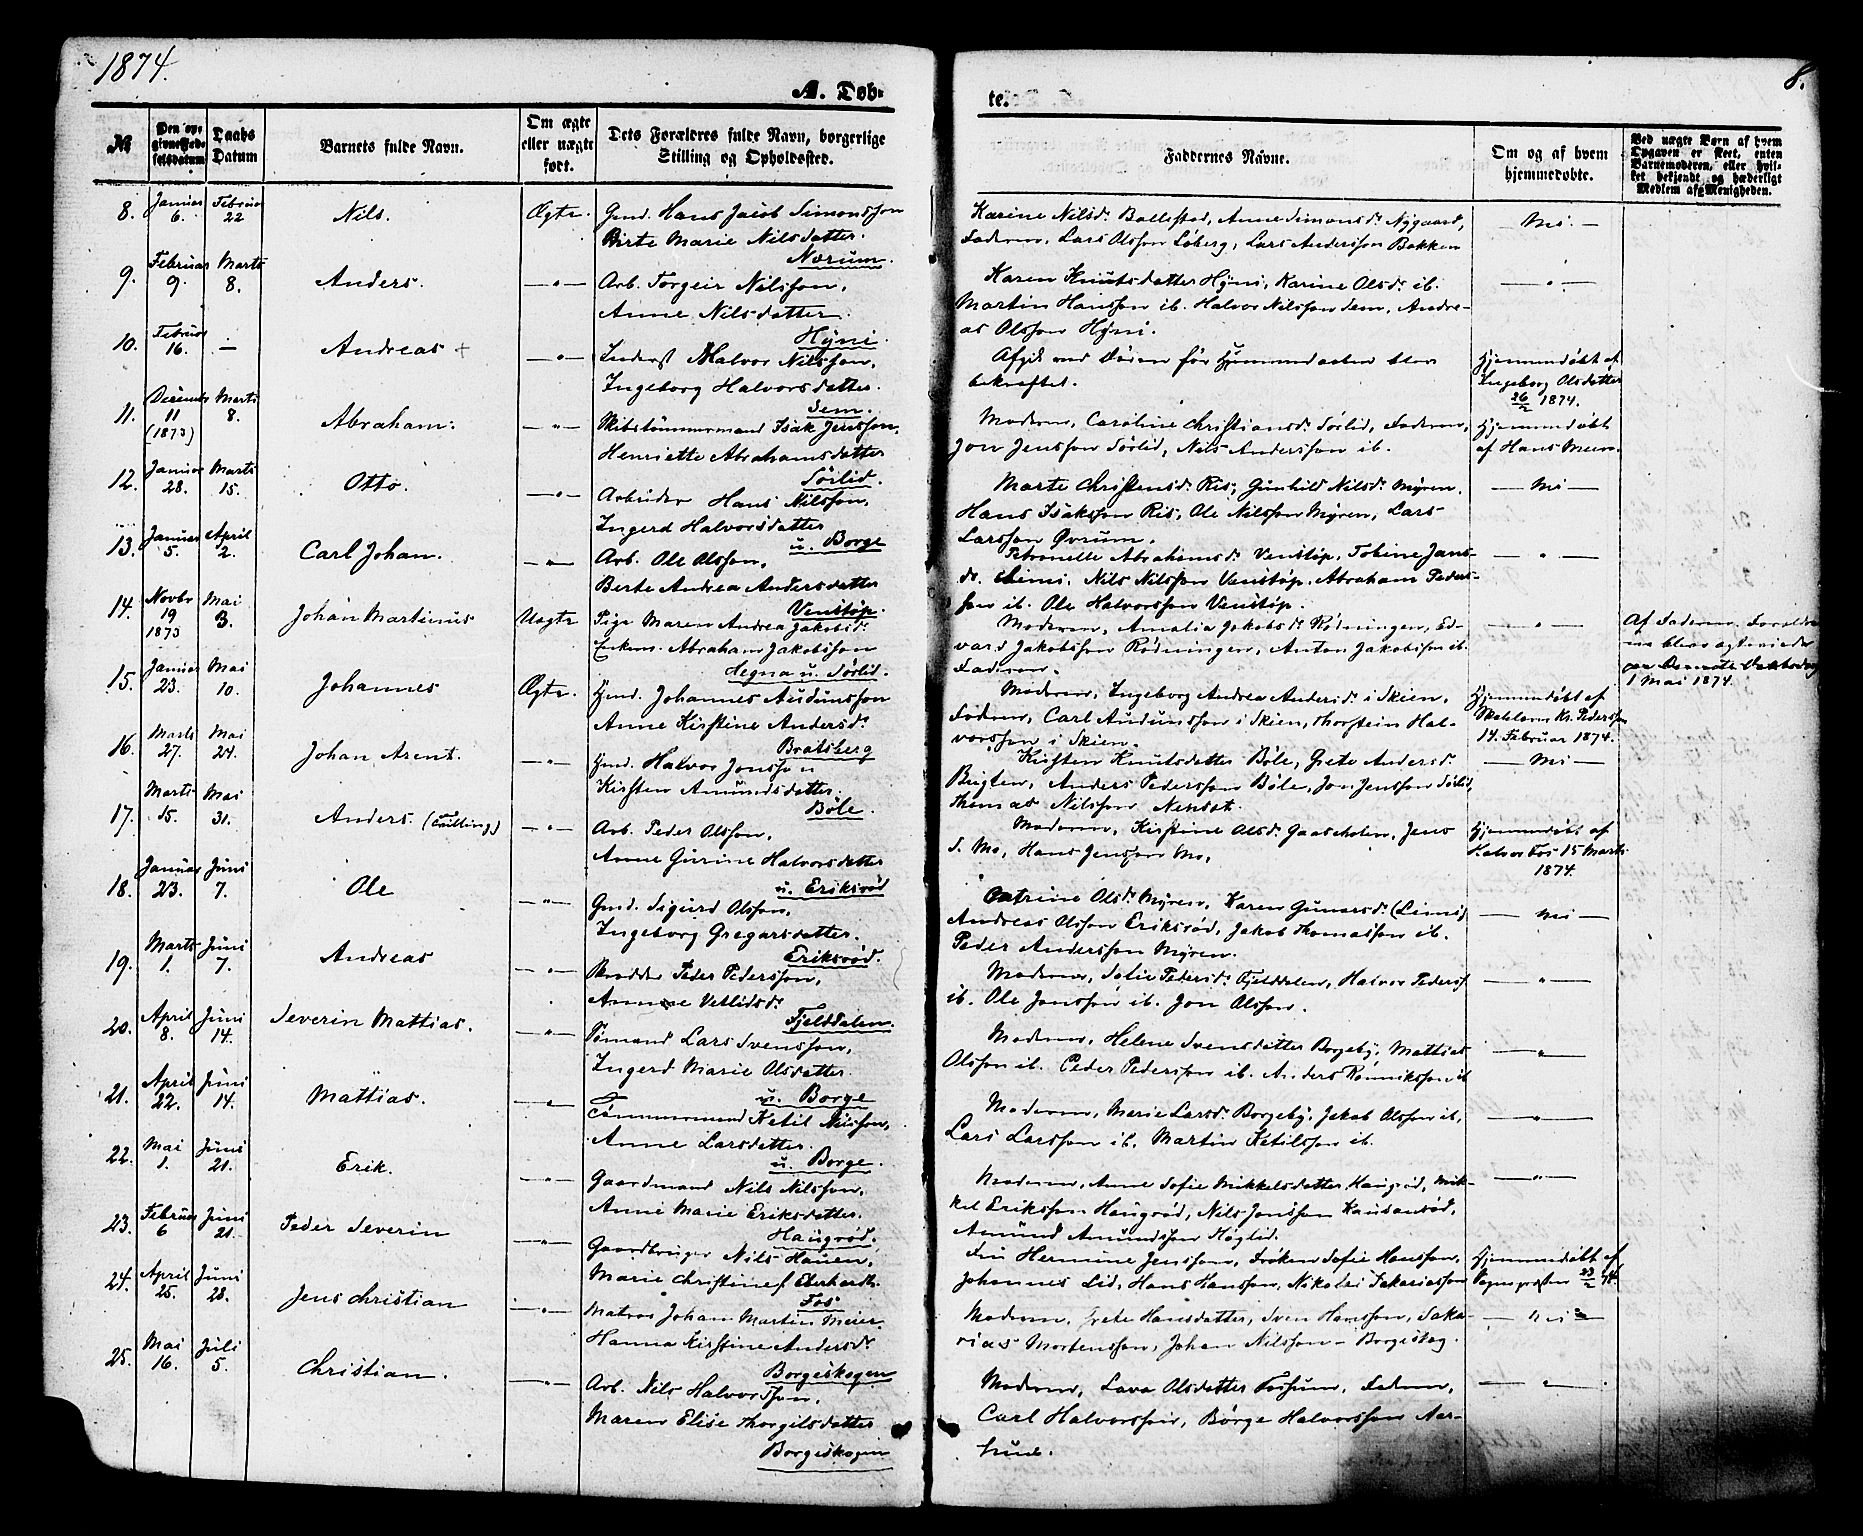 1874.
8.
A. Døb-
te.
№
Den op-
givne Fød-
selsdatum
Daabs
Datum
Barnets fulde Navn.
Om ægte
eller uægte
født.
Dets Forældres fulde Navn, borgerlige
Stilling og Opholdssted.
Faddernes Navne.
Om og af hvem
hjemmedøbte.
Ved uægte Børn af hvem
Opgaven er skeet, enten
Barnemoderen, eller hvil-
ket bekjendt og hæderligt
Medlem af Menigheden.
8.
Januar
6.
Februar
22
Nils.
Ægte.
Gmd. Hans Jacob Simonsson
Birte Marie Nilsdatter.
Nærum.
Karine Nilsd. Ballestad, Anne Simonsd. Nygaard,
Faderen, Lars Olsson Løberg, Lars Andersson Bakken
— Nei —
9.
Februar
9.
Marts
8.
Anders.
— " —
Arb. Torgeir Nilsson,
Anne Nilsdatter.
Hÿni.
Karen Knutsdatter Hÿni, Karine Olsd. ib.
Martin Hansson ib. Halvor Nilsson Sem, Andre-
as Olsson Hÿni.
— " —
10.
Februar
16.
—
Andreas +
— " —
Inderst Halvor Nilsson,
Ingeborg Halvorsdatter.
Sem.
Afgik ved Døden før Hjemmedaaben blev
bekræftet.
Hjemmedøbt af
Ingeborg Olsdatter
26/2 1874.
11.
Decembr
11
(1873)
Marts
8.
Abraham.
— " —
Skibstømmermand Isak Jensson,
Henriette Abrahamsdatter
Sørlid.
Moderen, Caroline Christiansd. Sørlid, Faderen,
Jon Jensson Sørlid, Nils Andersson ib.
Hjemmedøbt
af Hans Meen.
12.
Januar
28.
Marts
15.
Otto.
— " —
Arbeider Hans Nilsson,
Ingerd Halvorsdatter
u. Borge
Marte Christensd. Ris, Gunhild Nilsd. Myren,
Hans Isaksson Ris, Ole Nilsson Myren, Lars
Larsson Øvrum.
— Nei —
13.
Januar
5.
April
2.
Carl Johan.
— " —
Arb. Ole Olsson,
Berte Andrea Andersdatter
Venstøp.
Petronelle Abrahamsd. Venstøp, Tobine Jans-
d. Limi, Nils Nilsson Venstøp, Abraham Peders-
son ib. Ole Halvorsson Venstøp.
— " —
14.
Novbr
19
1873
Mai
3.
Johan Martinius
Uægte
Pige Maren Andrea Jakobsd.
Enkem. Abraham Jakobsson
Hegna u. Sørlid.
Moderen, Amalia Jakobsd. Rødningen, Ed-
vard Jakobsson Rødningen, Anton Jakobsson ib.
Faderen.
— " —
Af Faderen. Forældre-
ne bleve ægteviede
1 Mai 1874.
15.
Januar
23.
Mai
10.
Johannes
Ægte.
Gmd. Johannes Audunsson
Anne Kirstine Andersd.
Bratsberg
Moderen, Ingeborg Andrea Andersd. i Skien,
Faderen, Carl Audunsson i Skien, Thorstein Hal-
vorsson i Skien.
Hjemmedøbt af
Skolelærer Kr. Pedersson
14. Februar 1874.
16.
Marts
27.
Mai
24.
Johan Arent.
— " —
Gmd. Halvor Jonsson
Kirsten Amundsdatter.
Bøle.
Kirsten Knutsdatter Bøle, Grete Andersd.
Brigten, Anders Pedersson Bøle, Jon Jensson Sørlid,
Thomas Nilsson Nenset.
— Nei —
17.
Marts
15.
Mai
31.
Anders. (Tvilling)
— " —
Arb. Peder Olsson,
Anne Gurine Halvorsdatter
u. Eriksrød
Moderen, Kirstine Olsd. Gaasholm, Jens
S. Mo, Hans Jensson Mo,
Hjemmedøbt af
Halvor Fos 15 Marts
1874.
18.
Januar
23.
Juni
7.
Ole
— " —
Gmd. Sigurd Olsson,
Ingeborg Gregarsdatter.
Eriksrød.
Catrine Olsd. Myren, Karen Gunarsd. (Limi)
Andreas Olsson Eriksrød, Jakob Thomasson ib.
Peder Andersson Myren.
— Nei —
19.
Marts
1.
Juni
7.
Andreas
— " —
Skrædder Peder Pedersson,
Anne Vetlidsd.
Fjelddalen.
Moderen, Sofie Pedersd. Fjelddalen, Halvor Peders.
ib. Ole Jonsson ib. Jon Olsson.
— " —
20.
April
8.
Juni
14.
Severin Mattias.
— " —
Sømand Lars Svensson,
Ingerd Marie Olsdatter.
u. Borge
Moderen, Helene Svensdatter Borgeby, Mattias
Olsson ib. Peder Pedersson ib. Anders Rønniksson ib
— " —
21.
April
22.
Juni
14.
Mattias.
— " —
Tømmermand Ketil Nilsson,
Anne Larsdatter.
u. Borge.
Moderen, Marie Larsd. Borgeby, Jakob Olsson ib,
Lars Larsson ib, Martin Ketilsson ib.
— " —
22.
Mai
1.
Juni
21.
Erik.
— " —
Gaardmand Nils Nilsson,
Anne Marie Eriksdatter.
Haugrød.
Moderen, Anne Sofie Mikkelsdatter Haugrød, Mik-
kel Eriksson Haugrød, Nils Jonsson Kausanrød,
Amund Amundsson Høglid.
— " —
23.
Februar
6
Juni
21.
Peder Severin
— " —
Gaardbruger Nils Hauen,
Marie Christine f. Eberhardt.
Fos
Fru Hermine Jensson, Frøken Sofie Hansson,
Johannes Lid, Hans Hansson, Nikolai Sakariasson
Hjemmedøbt af
Sognepræsten 23/2 74.
24.
April
25.
Juni
28.
Jens Christian
— " —
Matros Johan Martin Meier.
Hanna Kirstine Andersd.
Borgeskogen
Moderen, Grete Hansdatter, Sven Hansson, Saka-
rias Mortensson, Johan Nilsson – Borgeskog.
— Nei —
25.
Mai
16.
Juli
5.
Christian.
— " —
Arb. Nils Halvorsson,
Maren Elise Thorgilsdatter
Borgeskogen
Moderen, Lava Olsdatter Fossum, Faderen,
Carl Halvorsson, Børge Halvorsson Aar-
hus.
— " —